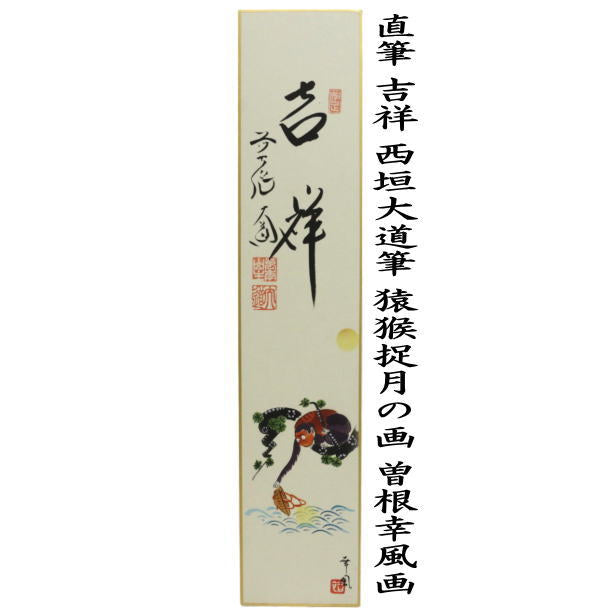 直筆 吉祥 西垣大道筆 猿猴捉月の画 曽根幸風画
吉祥
幸風